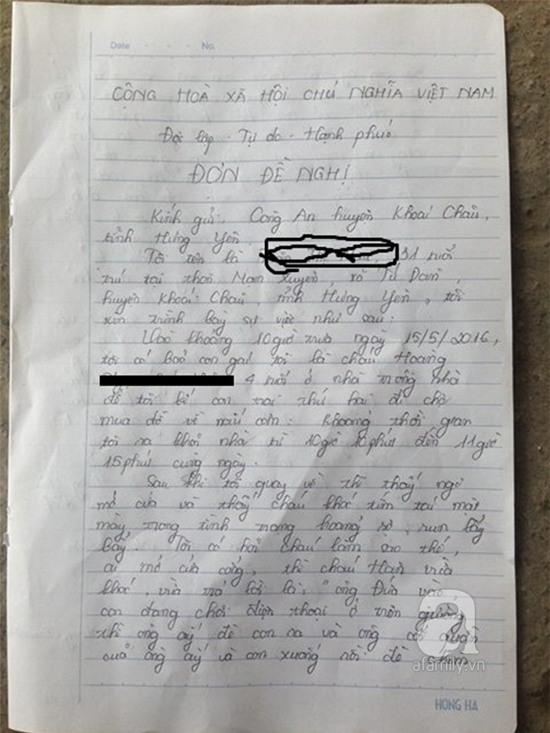 Date No.
CỘNG HOÀ XÃ HỘI CHỦ NGHĨA VIỆT NAM
Độc lập - Tự do - Hạnh phúc
ĐƠN ĐỀ NGHỊ
Kính gửi: Công An huyện Khoái Châu,
tỉnh Hưng Yên,
Tôi tên là 31 tuổi
trú tại thôn Nam Xuyên, xã Tứ Dân
huyện Khoái Châu, tỉnh Hưng Yên, tôi
xin trình bày sự việc như sau:
Vào khoảng 10 giờ trưa ngày 15/5/2016,
tôi có bảo con gái tôi là cháu Hoàng
4 tuổi ở nhà trông nhà
để tôi bế con trai thứ hai đi chợ
mua đồ về nấu cơm. Khoảng thời gian
tôi ra khỏi nhà từ 10 giờ 10 phút đến 11 giờ
15 phút cùng ngày.
Sau khi tôi quay về thì thấy ngõ
mở cửa và thấy cháu khóc tím tái mặt
mày trong tình trạng hoảng sợ, run lẩy
bẩy. Tôi có hỏi cháu làm sao thế,
ai mở cửa cổng, thì cháu vừa
khóc, vừa trả lời là, "ông Đức vào,
con đang chơi điện thoại ở trên giường
thì ông ấy đè con ra và ông cởi quần
của ông ấy và con xuống rồi đè
afamily.vn
HONG HA